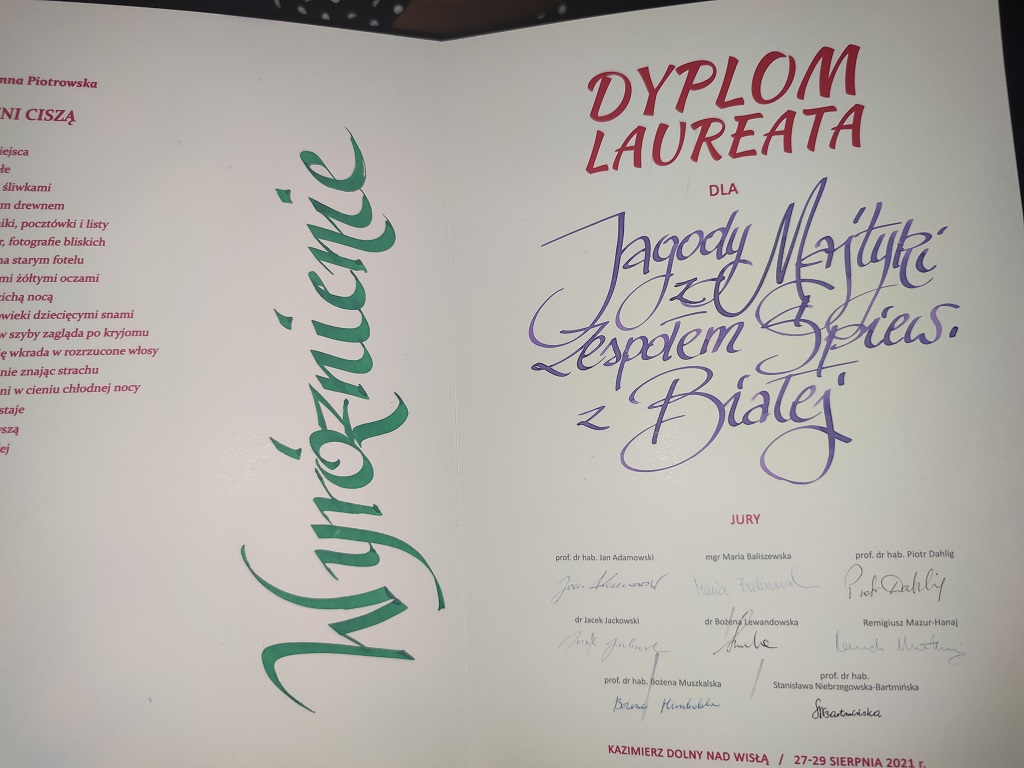 nna Piotrowska
NI CISZĄ
iejsca
łe
śliwkami
m drewnem
iki, pocztówki i listy
r, fotografie bliskich
na starym fotelu
mi żółtymi oczami
cichą nocą
owieki dziecięcymi snami
w szyby zagląda po kryjomu
ię wkrada w rozrzucone włosy
nie znając strachu
ni w cieniu chłodnej nocy
staje
wszą
ej
Wyróżnienie
DYPLOM
LAUREATA
DLA
Jagody Majtyki
z
Zespołem Śpiew.
z Białej
JURY
prof. dr hab. Jan Adamowski
mgr Maria Baliszewska
prof. dr hab. Piotr Dahlig
Piotr Dahlig
dr Jacek Jackowski
dr Bożena Lewandowska
Remigiusz Mazur-Hanaj
prof. dr hab. Bożena Muszkalska
prof. dr hab.
Stanisława Niebrzegowska-Bartmińska
KAZIMIERZ DOLNY NAD WISŁĄ / 27-29 SIERPNIA 2021 r.